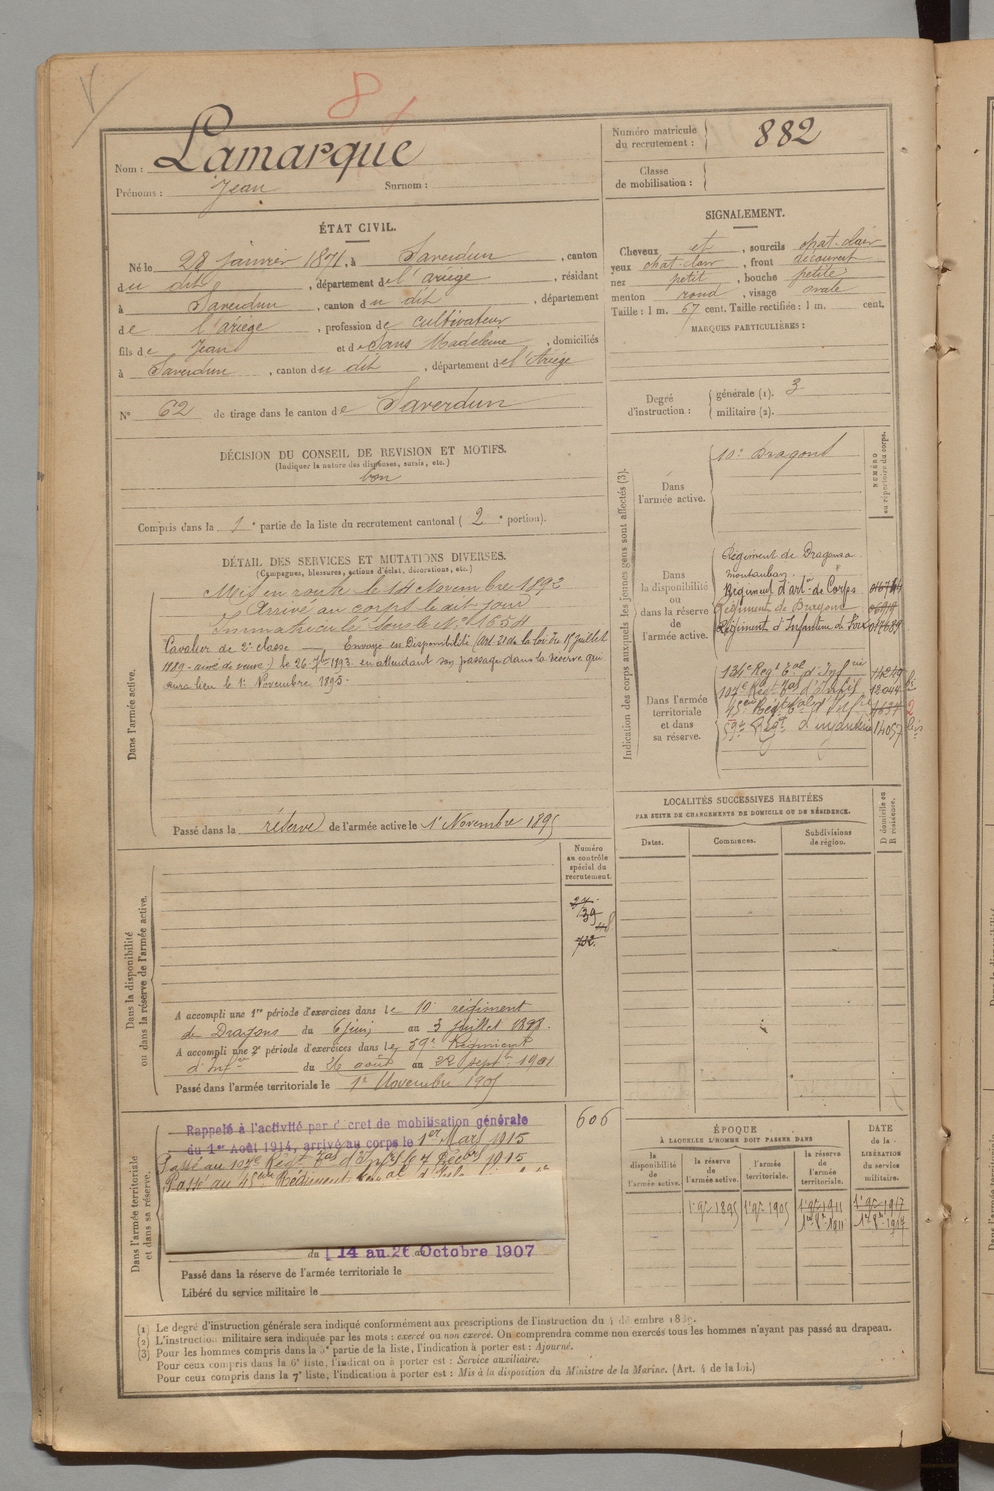 8
Nom : Lamarque
Prénoms : Jean Surnom :
Numéro matricule du recrutement : 882
Classe de mobilisation :
ÉTAT CIVIL.
Né le 28 janvier 1871, à Saverdun, canton
du dit, département de l'ariège, résidant
à Saverdun, canton du dit, département
de l'ariège, profession de cultivateur
fils de Jean et de Sans Madeleine, domiciliés
à Saverdun, canton du dit, département de l'Ariège
N° 62 de tirage dans le canton de Saverdun
SIGNALEMENT.
Cheveux et, sourcils chat-clair
yeux chat-clair, front découvert
nez petit, bouche petite
menton rond, visage ovale
Taille : 1 m. 67 cent. Taille rectifiée : 1 m. cent.
MARQUES PARTICULIÈRES :
Degré d'instruction : générale (1). 3
militaire (2).
DÉCISION DU CONSEIL DE REVISION ET MOTIFS.
(Indiquer la nature des dispenses, sursis, etc.)
bon
Compris dans la 1e partie de la liste du recrutement cantonal (2e portion).
DÉTAIL DES SERVICES ET MUTATIONS DIVERSES.
(Campagnes, blessures, actions d'éclat, décorations, etc.)
Dans l'armée active.
Mis en route le 14 Novembre 1892
Arrivé au corps le dit jour
Immatriculé sous le N° 1654
Cavalier de 2e classe — Envoyé en Disponibilité (Art. 21 de la loi du 15 juillet
1889 - aîné de veuve) le 26 7bre 1893 en attendant son passage dans la réserve qui
aura lieu le 1er Novembre 1895.
Passé dans la réserve de l'armée active le 1er Novembre 1895
Indication des corps auxquels les jeunes gens sont affectés (3).
NUMÉRO au répertoire du corps.
Dans l'armée active.
10e Dragons
Dans la disponibilité ou dans la réserve de l'armée active.
Régiment de Dragons
Montauban
Régiment d'artie de Corps
Régiment de Dragons
Régiment d'Infanterie de Foix 017689
Dans l'armée territoriale et dans sa réserve.
134e Régt Eal d'Infrie
107e Régt Tal d'Infie 12044
59e Régt d'infanterie 14057
LOCALITÉS SUCCESSIVES HABITÉES
PAR SUITE DE CHANGEMENTS DE DOMICILE OU DE RÉSIDENCE.
Dates. Communes. Subdivisions de région. D domicile ou R résidence.
Numéro au contrôle spécial du recrutement.
39
732.
Dans la disponibilité ou dans la réserve de l'armée active.
A accompli une 1re période d'exercices dans le 10e régiment
de Dragons du 6 juin au 3 juillet 1898.
A accompli une 2e période d'exercices dans le 59e Régiment
d'Infie du 26 août au 22 septbre 1901
Passé dans l'armée territoriale le 1er Novembre 1905
606
Dans l'armée territoriale et dans sa réserve.
Rappelé à l'activité par décret de mobilisation générale
du 1er Août 1914, arrivé au corps le 1er Mars 1915
Passé au 107e Régt Tal d'Inf le 7 Décbre 1915
Passé au 45e Régiment
du 14 au 26 Octobre 1907
Passé dans la réserve de l'armée territoriale le
Libéré du service militaire le
ÉPOQUE
À LAQUELLE L'HOMME DOIT PASSER DANS
la disponibilité de l'armée active. la réserve de l'armée active. l'armée territoriale. la réserve de l'armée territoriale. DATE de la LIBÉRATION du service militaire.
1er 9bre 1895 1er 9bre 1905 1er 9bre 1911 1er 9bre 1917
(1) Le degré d'instruction générale sera indiqué conformément aux prescriptions de l'instruction du 4 décembre 1889.
(2) L'instruction militaire sera indiquée par les mots : exercé ou non exercé. On comprendra comme non exercés tous les hommes n'ayant pas passé au drapeau.
(3) Pour les hommes compris dans la 5e partie de la liste, l'indication à porter est : Ajourné.
Pour ceux compris dans la 6e liste, l'indication à porter est : Service auxiliaire.
Pour ceux compris dans la 7e liste, l'indication à porter est : Mis à la disposition du Ministre de la Marine. (Art. 4 de la loi.)